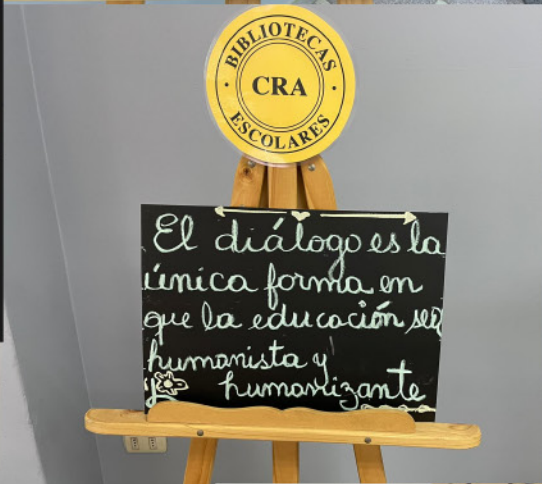 BIBLIOTECAS
CRA
ESCOLARES
El diálogo es la
única forma en
que la educación sea
humanista y
humanizante